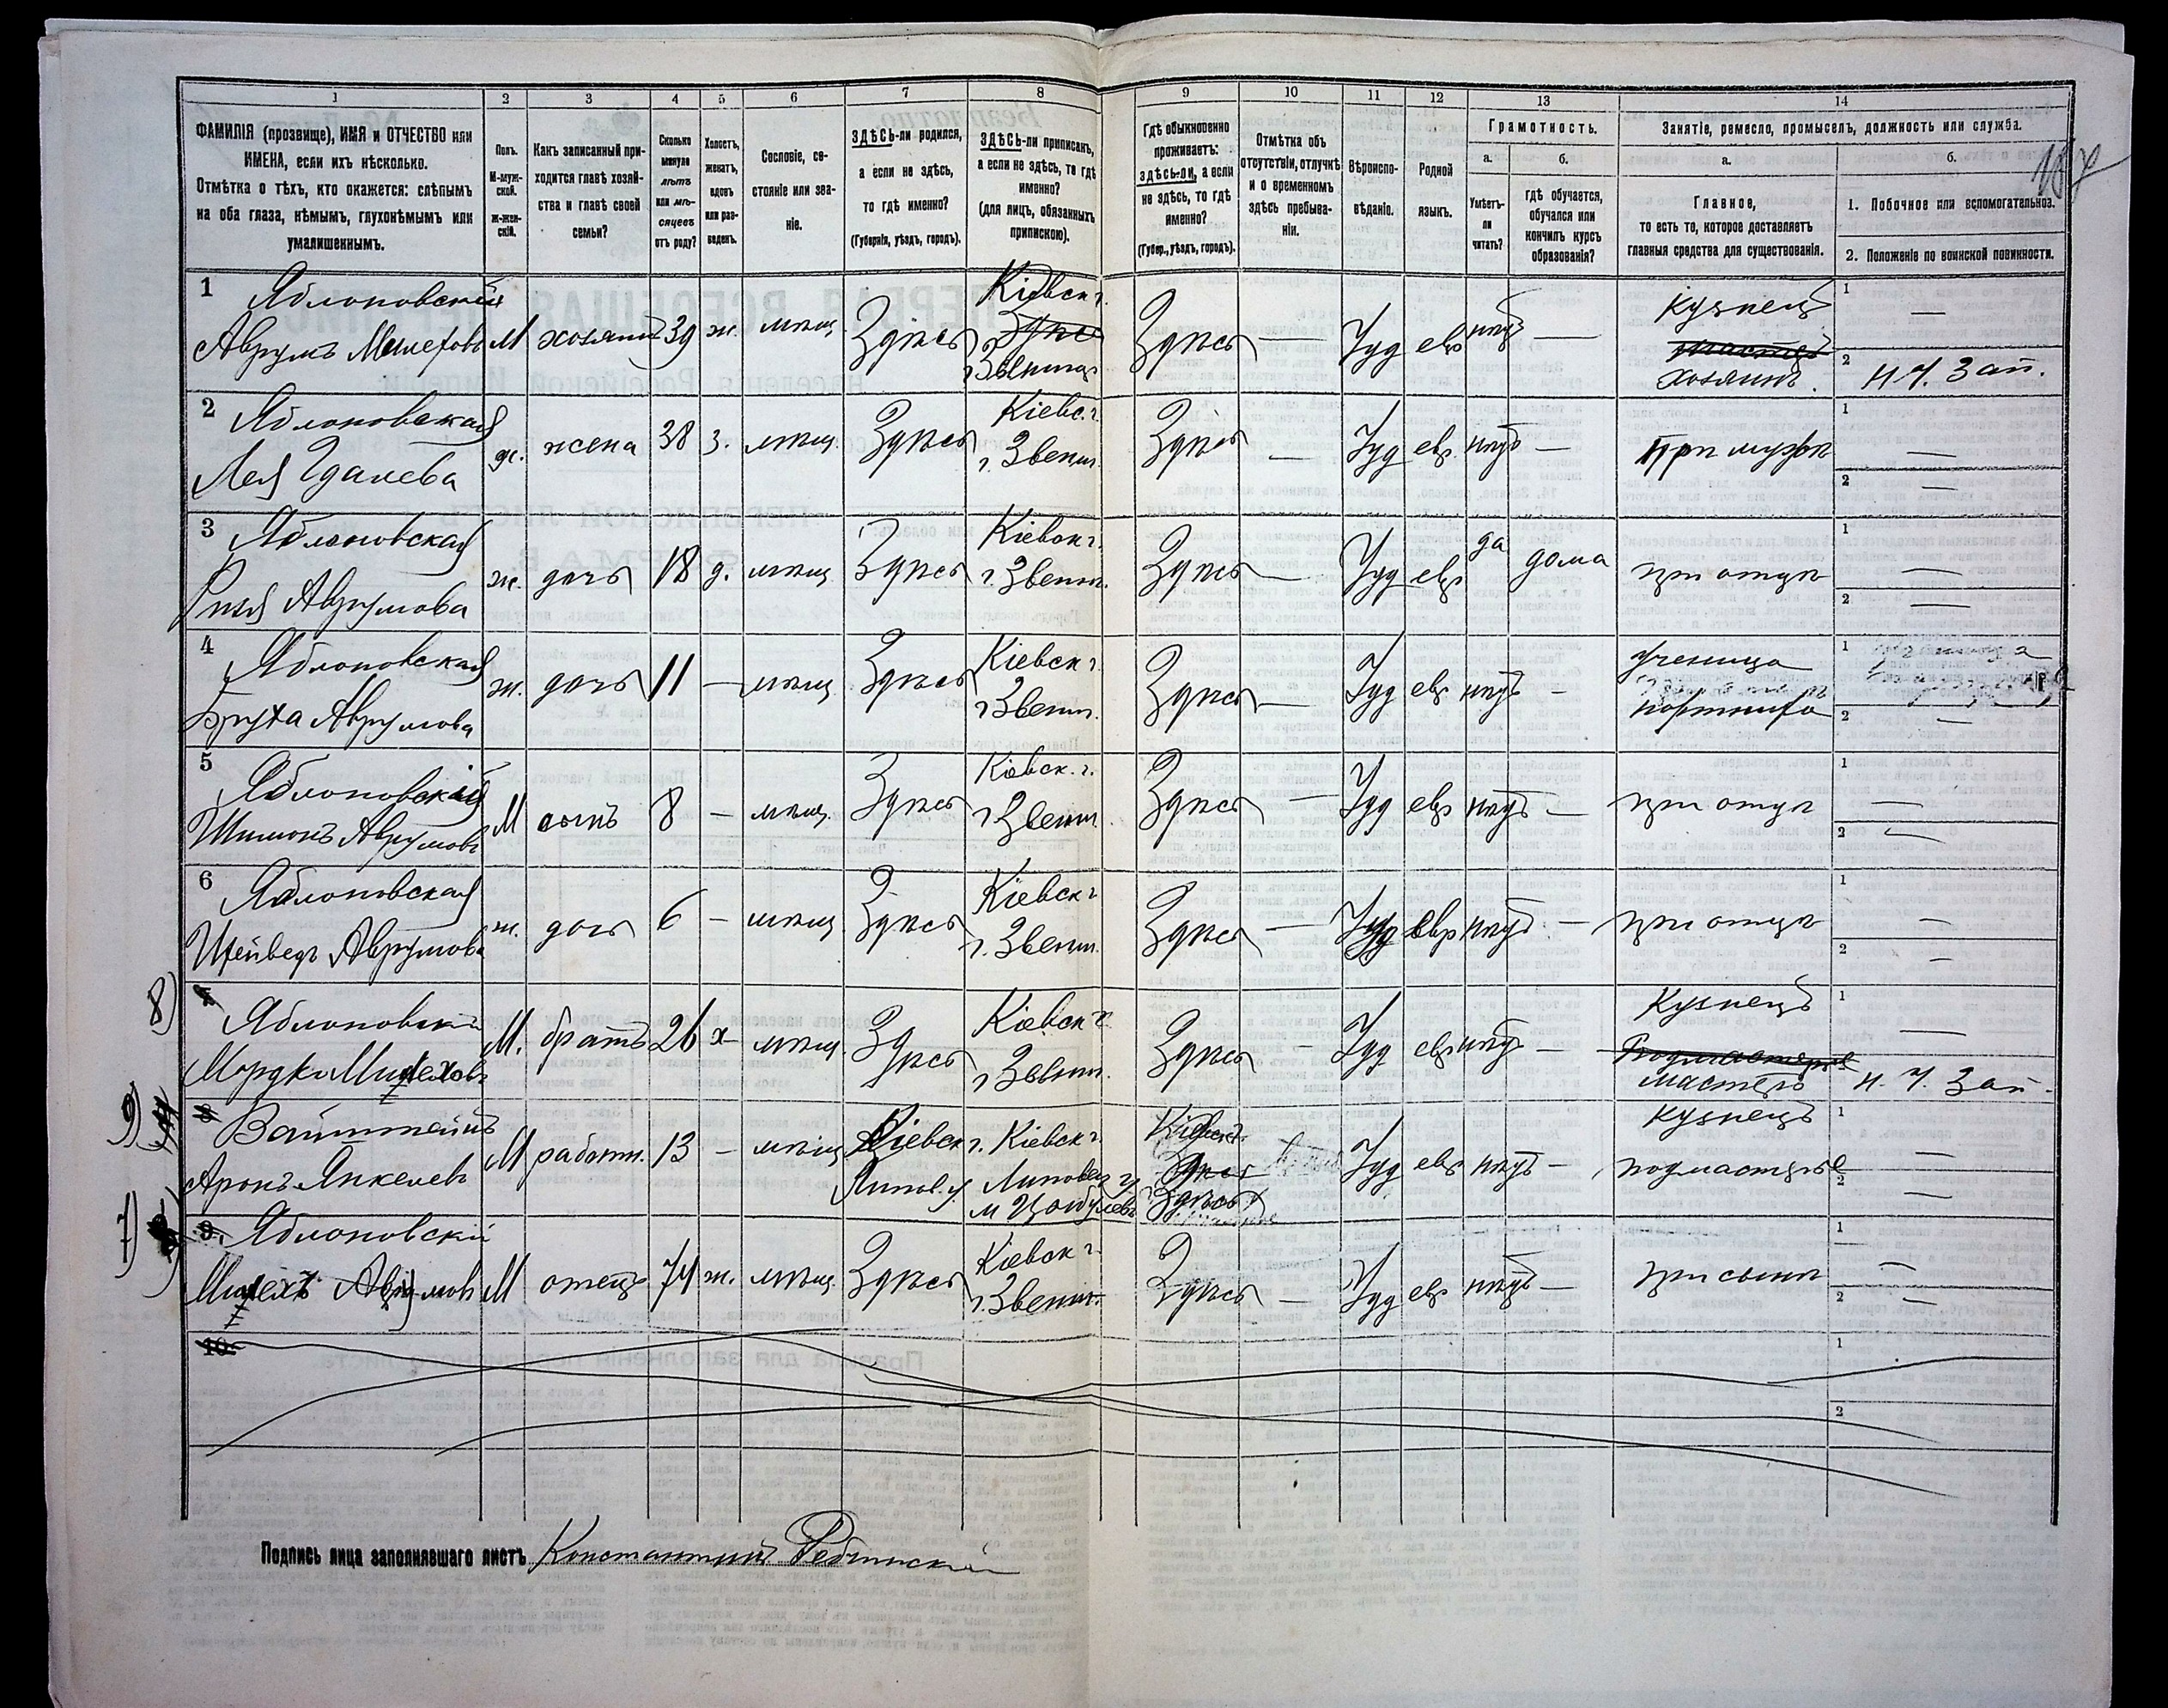 1 2 3 4 5 6 7 8 9 10 11 12 13 14
ФАМИЛІЯ (прозвище), ИМЯ и ОТЧЕСТВО или
ИМЕНА, если ихъ нѣсколько.
Отмѣтка о тѣхъ, кто окажется: слѣпымъ
на оба глаза, нѣмымъ, глухонѣмымъ или
умалишеннымъ.
Полъ.
М-муж-
ской.
ж-жен-
скій.
Какъ записанный при-
ходится главѣ хозяй-
ства и главѣ своей
семьи?
Сколько
минуло
лѣтъ
или мѣ-
сяцевъ
отъ роду?
Холостъ,
женатъ,
вдовъ
или раз-
веденъ.
Сословіе, со-
стояніе или зва-
ніе.
ЗДѢСЬ-ли родился,
а если не здѣсь,
то гдѣ именно?
(Губернія, уѣздъ, городъ).
ЗДѢСЬ-ли приписанъ,
а если не здѣсь, то гдѣ
именно?
(для лицъ, обязанныхъ
припискою).
Гдѣ обыкновенно
проживаетъ:
здѣсь-ли, а если
не здѣсь, то гдѣ
именно?
(Губер., уѣздъ, городъ).
Отмѣтка объ
отсутствіи, отлучкѣ
и о временномъ
здѣсь пребыва-
ніи.
Вѣроиспо-
вѣданіе.
Родной
языкъ.
Грамотность.
а.
Умѣетъ-
ли
читать?
б.
Гдѣ обучается,
обучался или
кончилъ курсъ
образованія?
Занятіе, ремесло, промыселъ, должность или служба.
а.
Главное,
то есть то, которое доставляетъ
главныя средства для существованія.
б.
1. Побочное или вспомогательное.
2. Положеніе по воинской повинности.
1 Яблоновскій
Аврумъ М хозяинъ 39 ж. мѣщ. Здѣсь Кіевск г. Здѣсь г. Звениг. Здѣсь — Іуд евр нѣтъ — Кузнецъ хозяинъ. 1 — 2 н. ч. Зап.
2 Яблоновская
Лея ж. жена 38 з. мѣщ. Здѣсь Кіевс. г. г. Звениг. Здѣсь — Іуд евр нѣтъ — При мужѣ 1 — 2 —
3 Яблоновская
Аврумова ж. дочь 18 д. мѣщ Здѣсь Кіевск г. г. Звениг. Здѣсь — Іуд евр да дома при отцѣ 1 — 2 —
4 Яблоновская
Бруха Аврумова ж. дочь 11 — мѣщ Здѣсь Кіевск г. г Звениг. Здѣсь — Іуд евр нѣтъ — Ученица 1 2 —
5 Яблоновскій
Шимонъ Аврумовъ М сынъ 8 — мѣщ. Здѣсь Кіевск. г. г Звениг. Здѣсь — Іуд евр нѣтъ — при отцѣ 1 — 2 —
6 Яблоновская
Аврумова ж. дочь 6 — мѣщ Здѣсь Кіевск г г. Звениг. Здѣсь — Іуд евр нѣтъ — при отцѣ 1 — 2 —
8) Яблоновскій
Мордко М. братъ 26 х мѣщ. Здѣсь Кіевск г. г Звениг. Здѣсь — Іуд евр нѣтъ — Кузнецъ Подмастерье мастеръ 1 — н. ч. Зап.
9) 8 Вайнштейнъ
Аронъ Янкелевъ М работн. 13 — мѣщ Кіевск г. Липов. у Кіевск г. Липовец у м Цыбулевъ Здѣсь Іуд евр нѣтъ — Кузнецъ подмастерье 1 — 2 —
7) 9. Яблоновскій
М отецъ 74 ж. мѣщ. Здѣсь Кіевск г. г. Звениг. Здѣсь — Іуд евр нѣтъ — при сынѣ 1 — 2 —
10 1 2
Подпись лица заполнявшаго листъ Константинъ